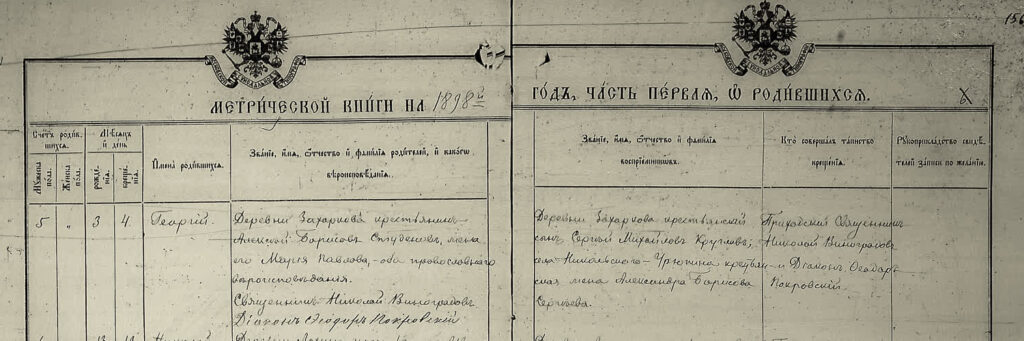 156
МЕТРИЧЕСКОЙ КНИГИ НА 1898й
ГОДЪ, ЧАСТЬ ПЕРВАЯ, Ѡ РОДИВШИХСЯ.
Счетъ родив-
шихся.
Мѣсяцъ
и день
Мужеска
пола.
Женска
пола.
рожде-
нія.
креще-
нія.
Имена родившихся.
Званіе, имя, отчество и фамилія родителей, и какого
вѣроисповѣданія.
Званіе, имя, отчество и фамилія
воспріемниковъ.
Кто совершалъ таинство
крещенія.
Рукоприкладство свидѣ-
телей записи по желанію.
5 „ 3 4. Георгій.
Деревни Захаркова крестьянинъ
Алексѣй Борисовъ Студеновъ, жена
его Марія Павлова, - оба православнаго
вѣроисповѣданія.
Священникъ Николай Виноградовъ
Діаконъ Ѳеодоръ Покровскій
Деревни Захаркова крестьянскій
сынъ Сергѣй Михайловъ Кругловъ;
села Никольскаго-Урюпина крестьян-
ская жена Александра Борисова
Сергѣева.
Приходскій Священникъ
Николай Виноградовъ
и Діаконъ Ѳеодоръ
Покровскій